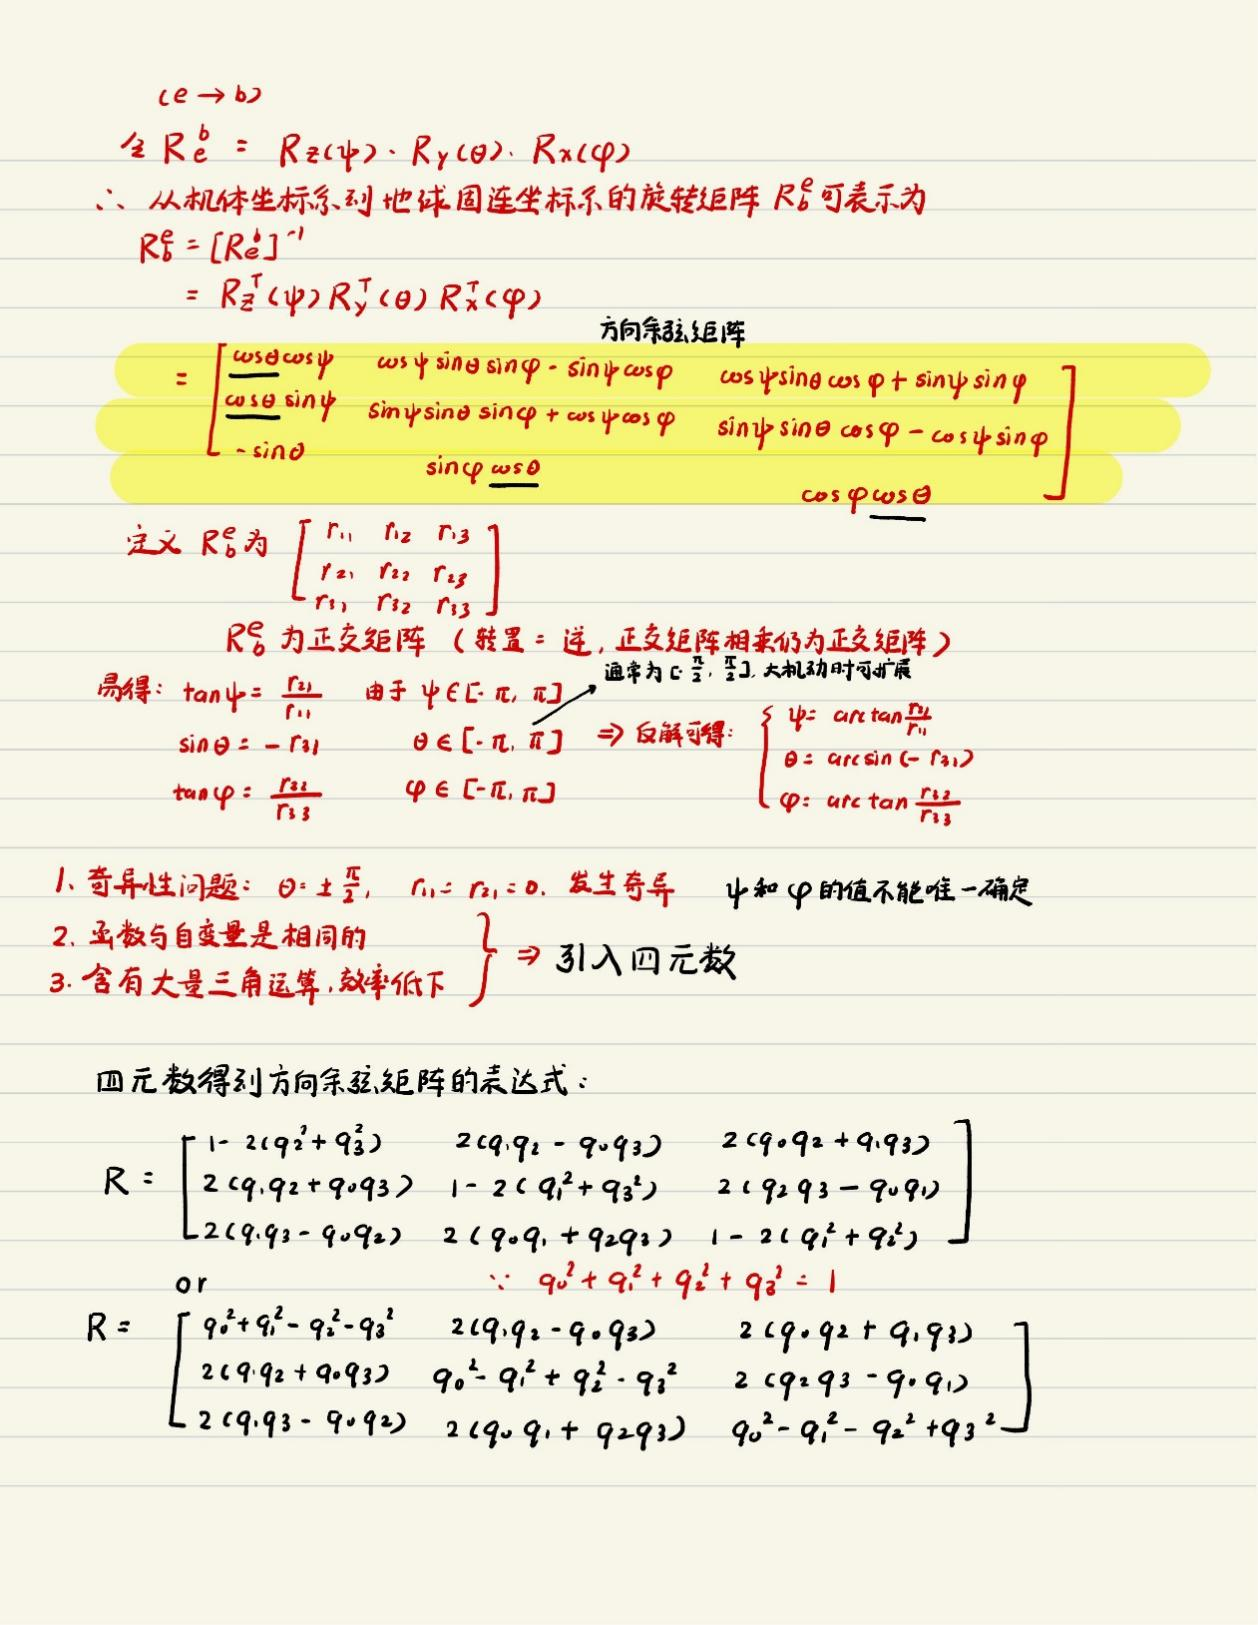 (e → b)
令 R_e^b = Rz(ψ)·Ry(θ)·Rx(φ)
∴ 从机体坐标系到地球固连坐标系的旋转矩阵 R_b^e 可表示为
R_b^e = [R_e^b]^-1
= Rz^T(ψ) Ry^T(θ) Rx^T(φ)
方向余弦矩阵
= [ cosθcosψ cosψsinθsinφ - sinψcosφ cosψsinθcosφ + sinψsinφ
cosθsinψ sinψsinθsinφ + cosψcosφ sinψsinθcosφ - cosψsinφ
-sinθ sinφcosθ cosφcosθ ]
定义 R_b^e 为 [ r11 r12 r13
r21 r22 r23
r31 r32 r33 ]
R_b^e 为正交矩阵 (转置 = 逆, 正交矩阵相乘仍为正交矩阵)
通常为[-π/2, π/2], 大机动时可扩展
易得: tanψ = r21/r11 由于 ψ∈[-π, π]
sinθ = -r31 θ∈[-π, π] ⇒ 反解可得: { ψ = arctan r21/r11
θ = arcsin(-r31)
tanφ = r32/r33 φ∈[-π, π] φ = arctan r32/r33
1. 奇异性问题: θ = ±π/2, r11 = r21 = 0. 发生奇异 ψ和φ的值不能唯一确定
2. 函数与自变量是相同的
3. 含有大量三角运算, 效率低下 } ⇒ 引入四元数
四元数得到方向余弦矩阵的表达式:
R = [ 1 - 2(q2² + q3²) 2(q1q2 - q0q3) 2(q0q2 + q1q3)
2(q1q2 + q0q3) 1 - 2(q1² + q3²) 2(q2q3 - q0q1)
2(q1q3 - q0q2) 2(q0q1 + q2q3) 1 - 2(q1² + q2²) ]
or ∵ q0² + q1² + q2² + q3² = 1
R = [ q0² + q1² - q2² - q3² 2(q1q2 - q0q3) 2(q0q2 + q1q3)
2(q1q2 + q0q3) q0² - q1² + q2² - q3² 2(q2q3 - q0q1)
2(q1q3 - q0q2) 2(q0q1 + q2q3) q0² - q1² - q2² + q3² ]